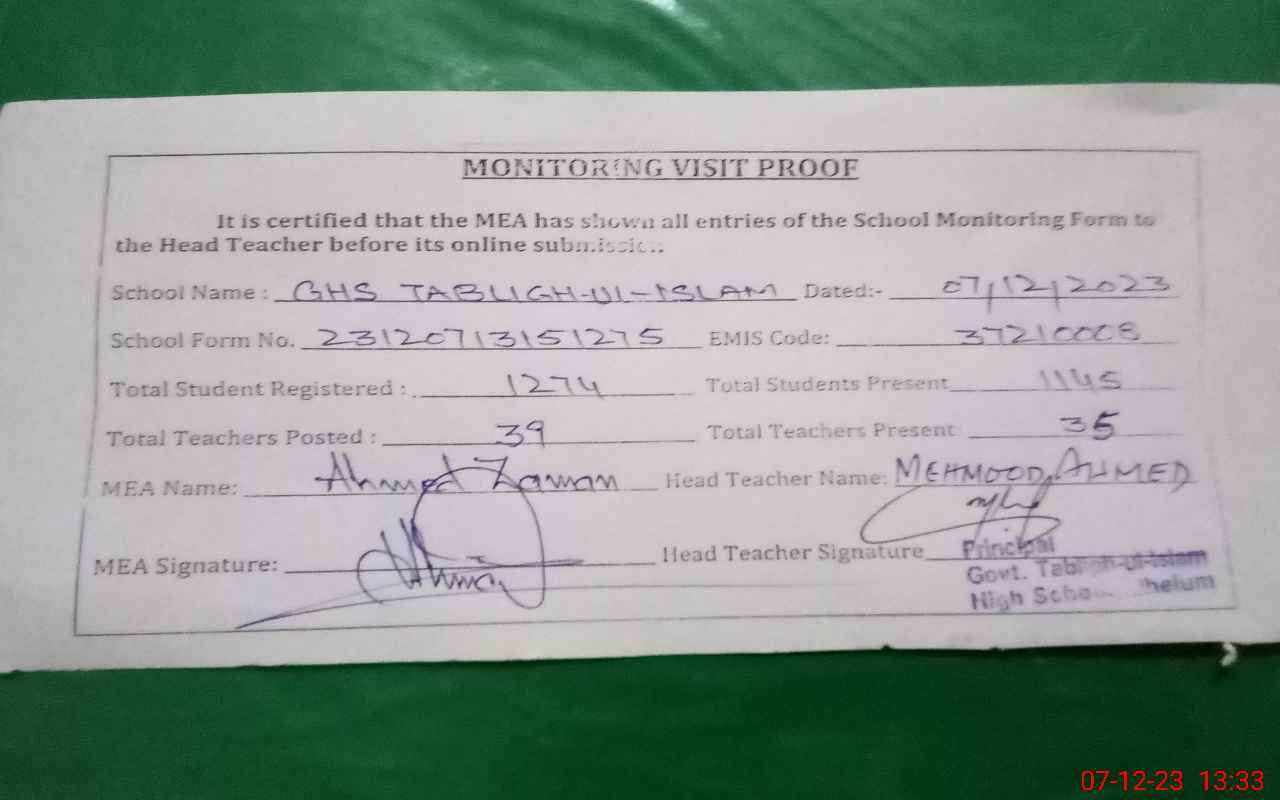 MONITORING VISIT PROOF
It is certified that the MEA has shown all entries of the School Monitoring Form to
the Head Teacher before its online submission.
School Name : GHS TABLIGH-UL-ISLAM Dated:- 07/12/2023
School Form No. 23120713151275 EMIS Code: 37210008
Total Student Registered : 1274 Total Students Present 1145
Total Teachers Posted : 39 Total Teachers Present 35
MEA Name: Ahmed Zaman Head Teacher Name: MEHMOOD AHMED
MEA Signature: Head Teacher Signature
Principal
Govt. Tabligh-ul-Islam
High School Jhelum
07-12-23 13:33